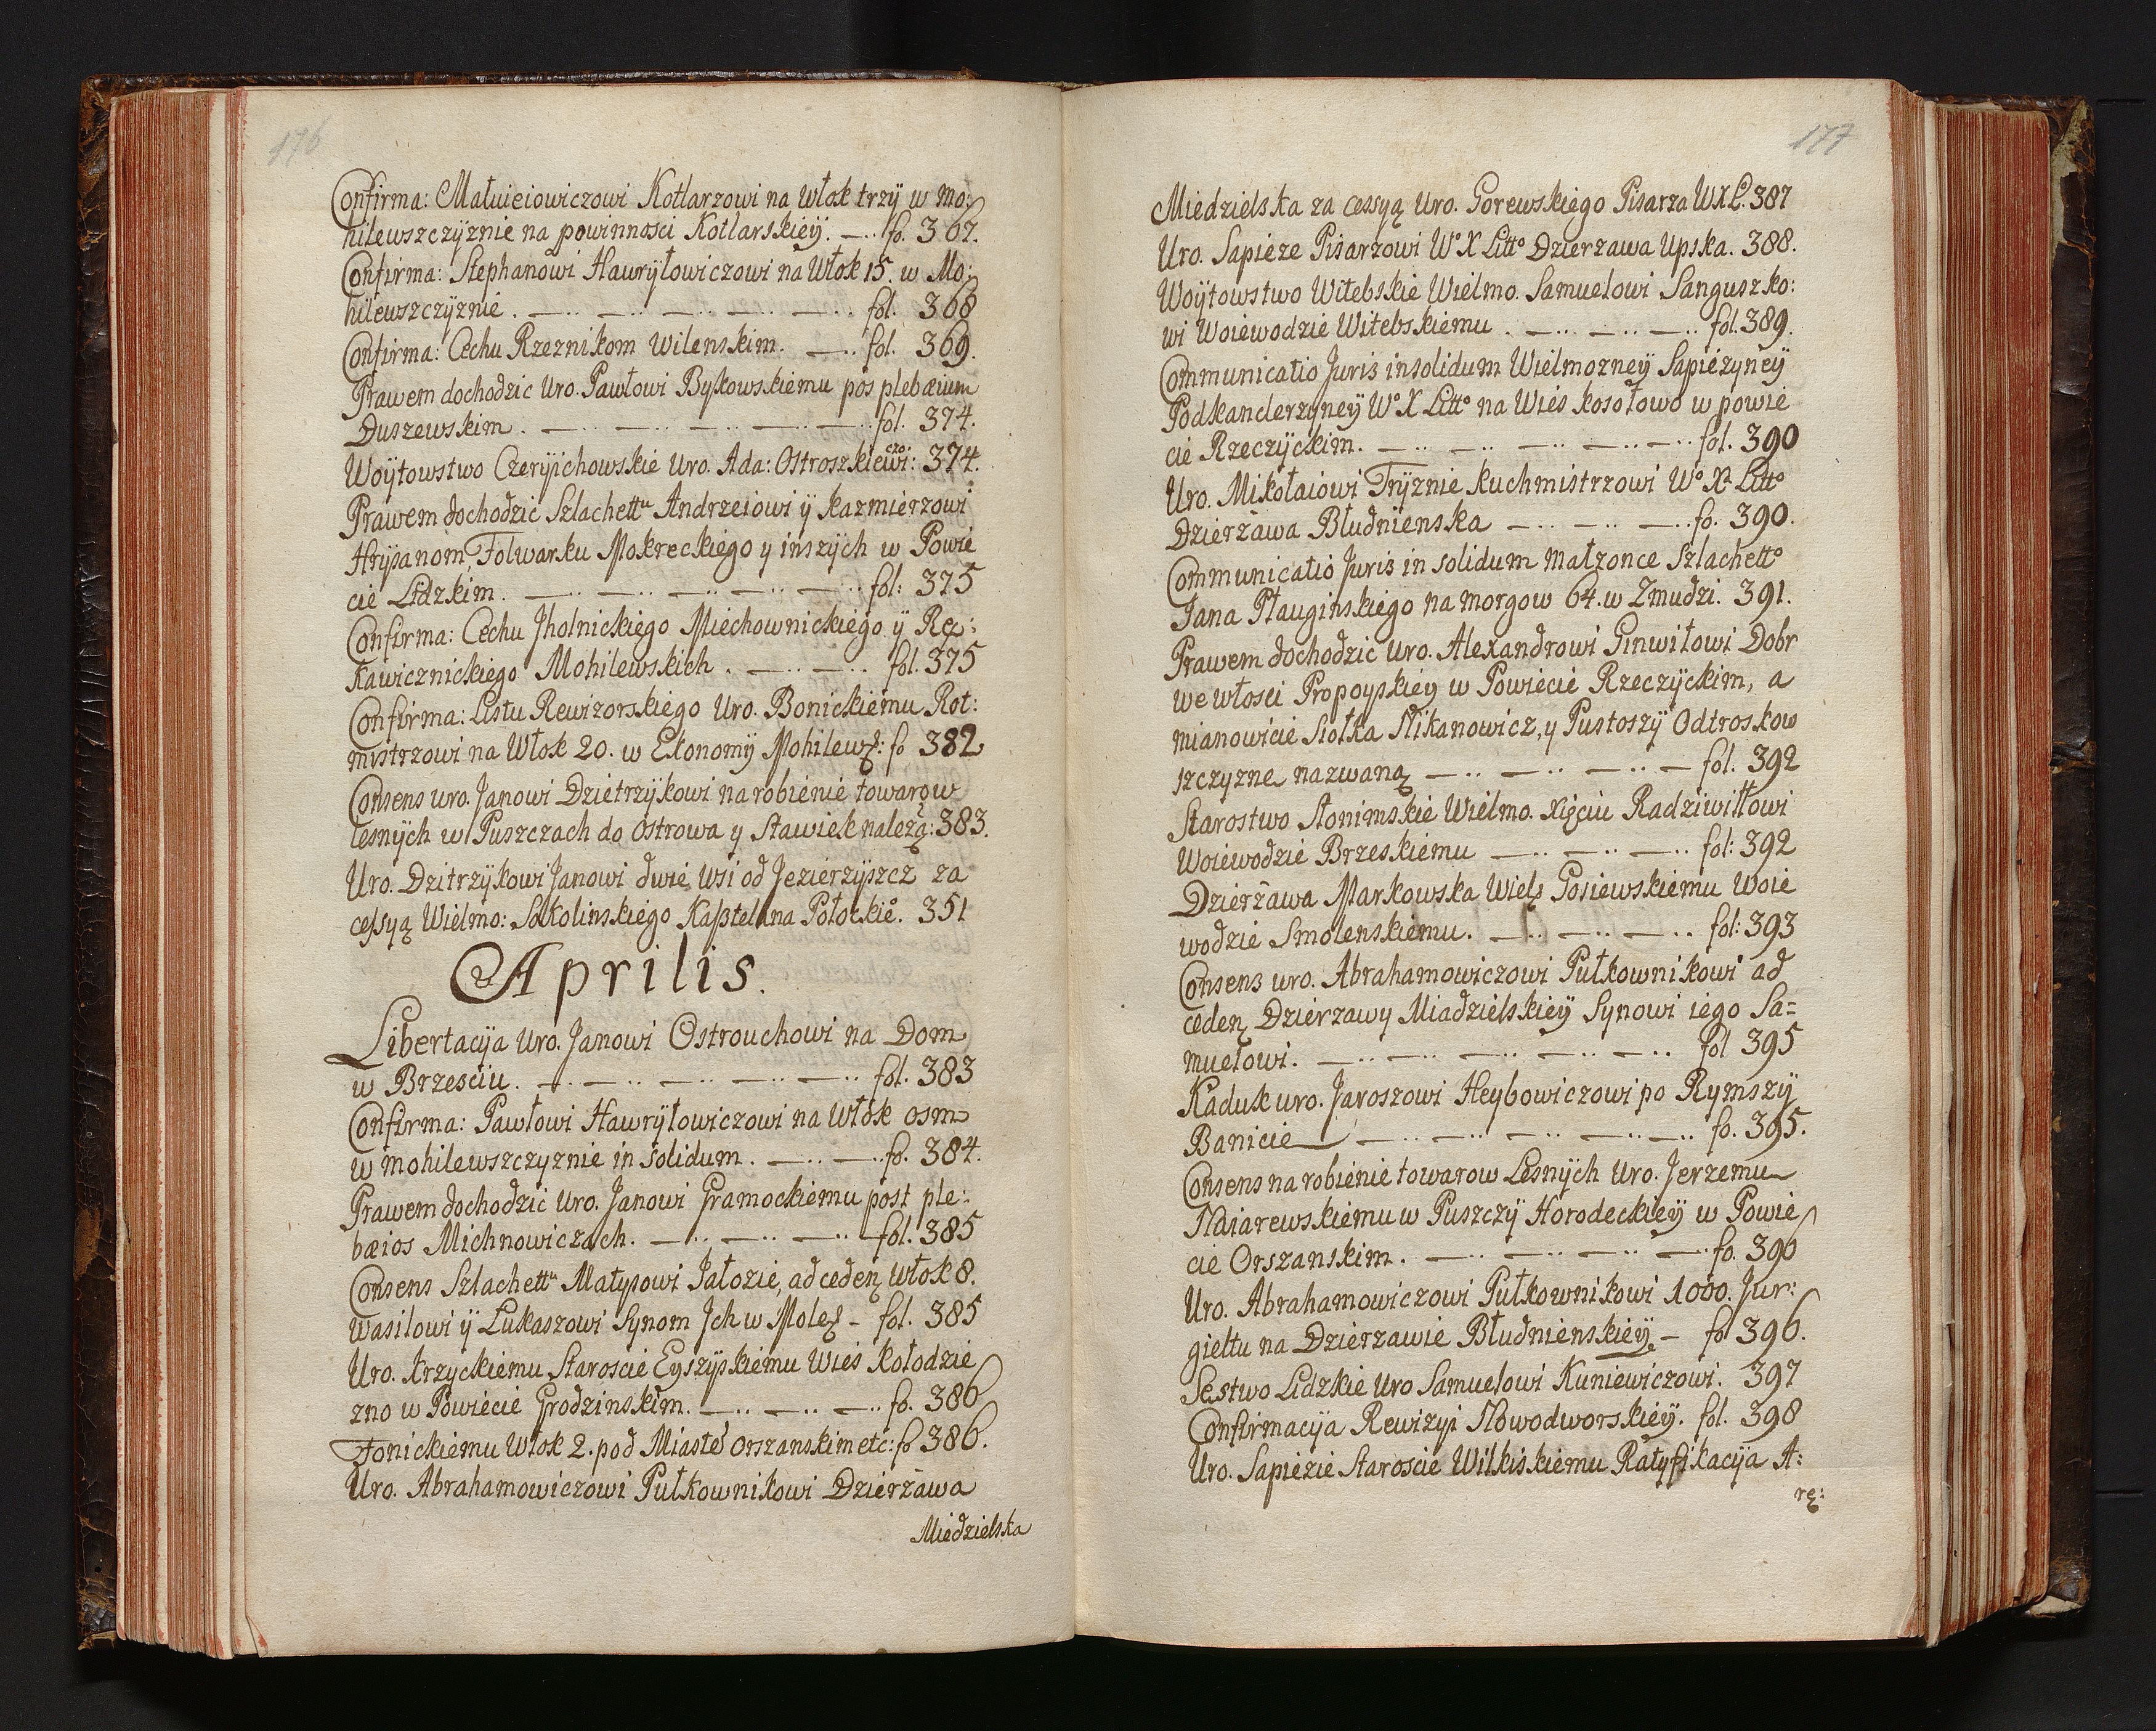 176
Confirma: Matwieiowiczowi Kotlarzowi na Włok trzÿ w Mo:
hilewszczÿznie na powinnosci Kotlarskieÿ. fo. 367.
Confirma: Stephanowi Hawrÿłowiczowi na Włok 15. w Mo:
hilewszczÿznie. fol. 368
Confirma: Cechu Rzeznikom Wilenskim. fol. 369.
Prawem dochodzic Uro. Pawłowi Bykowskiemu pos plebæium
Duszewskim. fol. 374.
Woÿtowstwo Czeryichowskie Uro. Ada: Ostroszkiewi:czo: 374.
Prawem dochodzic Szlachettu Andrzeiowi ÿ Kazmierzowi
Hrÿsanom, Folwarku Mokreckiego y inszÿch w Powie
cie Lidzkim. fol: 375
Confirma: Cechu Jholnickiego Miechownickiego ÿ Rę:
kawicznickiego Mohilewskich. fol. 375
Confirma: Listu Rewizorskiego Uro. Bonickiemu Rot:
mistrzowi na Włok 20. w Ekonomÿ Mohilew: fo 382
Consens uro. Janowi Dzietrzÿkowi na robienie towarow
lesnÿch w Puszczach do Ostrowa y Stawiek należą: 383.
Uro. Dzitrzÿkowi Janowi dwie wsi od Jezierzÿszcz za
cessyą Wielmo: Sokolinskiego Kasztelana Połockie. 351
Aprilis.
Libertacÿa Uro. Janowi Ostrouchowi na Dom
w Brzesciu. fol. 383
Confirma: Pawłowi Hawrÿłowiczowi na Włok osm
w mohilewszczyznie in solidum. fo. 384.
Prawem dochodzić Uro. Janowi Gramockiemu post ple:
bæios Michnowiczach. fol. 385
Consens Szlachettu Matysowi Jałozie, ad ceden włok 8.
Wasilowi ÿ Lukaszowi Synom Jch w Mole fol. 385
Uro. Krzyckiemu Staroscie Eyszÿskiemu Wieś Kołodzie
zno w Powiecie Grodzinskim. fo. 386
Fonickiemu Włok 2. pod Miaste Orszanskim etc: fo 386.
Uro. Abrahamowiczowi Pułkownikowi Dzierżawa
Miedzielska
177
Miedzielska za cessyą Uro. Gorewskiego Pisarza WXL. 387
Uro. Sapieze Pisarzowi Wo X Litto Dzierzawa Upska. 388.
Woÿtowstwo Witebskie Wielmo. Samuelowi Sanguszko:
wi Woiewodzie Witebskiemu. fol. 389.
Communicatio Juris insolidum Wielmozneÿ Sapiezyneÿ
Podkanclerzyneÿ Wo X Litto na Wieś Kosołowo w powie
cie Rzeczÿckim. fol. 390
Uro. Mikołaiowi Trÿznie Kuchmistrzowi Wo Xa Litto
Dzierżawa Błudnienska fo. 390.
Communicatio Juris in solidum Małzonce Szlachetto
Jana Płauginskiego na morgow 64. w Zmudzi. 391.
Prawem dochodzić Uro. Alexandrowi Ginwiłowi Dobr
we włosci Propoyskiey w Powiecie Rzeczÿckim, a
mianowicie Siołka Nikanowicz, y Pustoszÿ Odtroskow
szczyzne nazwaną fol. 392
Starostwo Słonimskie Wielmo. Xięciu Radziwiłłowi
Woiewodzie Brzeskiemu fol: 392
Dzierżawa Markowska Wiel Gosiewskiemu Woie
wodzie Smolenskiemu. fol: 393
Consens uro. Abrahamowiczowi Pułkownikowi ad
ceden Dzierzawy Miadzielskieÿ Synowi iego Sa=
muelowi. fol 395
Kaduk uro. Jaroszowi Heybowiczowi po Rymszÿ
Banicie fo. 395.
Consens na robienie towarow Lesnÿch Uro. Jerzemu
Naiarewskiemu w Puszczÿ Horodeckieÿ w Powie
cie Orszanskim. fo. 396
Uro. Abrahamowiczowi Pułkownikowi 1000. Jur:
giełtu na Dzierzawie Błudnienskieÿ fol 396.
Sęstwo Lidzkie Uro Samuelowi Kuniewiczowi. 397
Confirmacÿa Rewizyi Nowodworskieÿ. fol. 398
Uro. Sapiezie Staroscie Wilkiskiemu Ratyfikacÿa A:
rę: